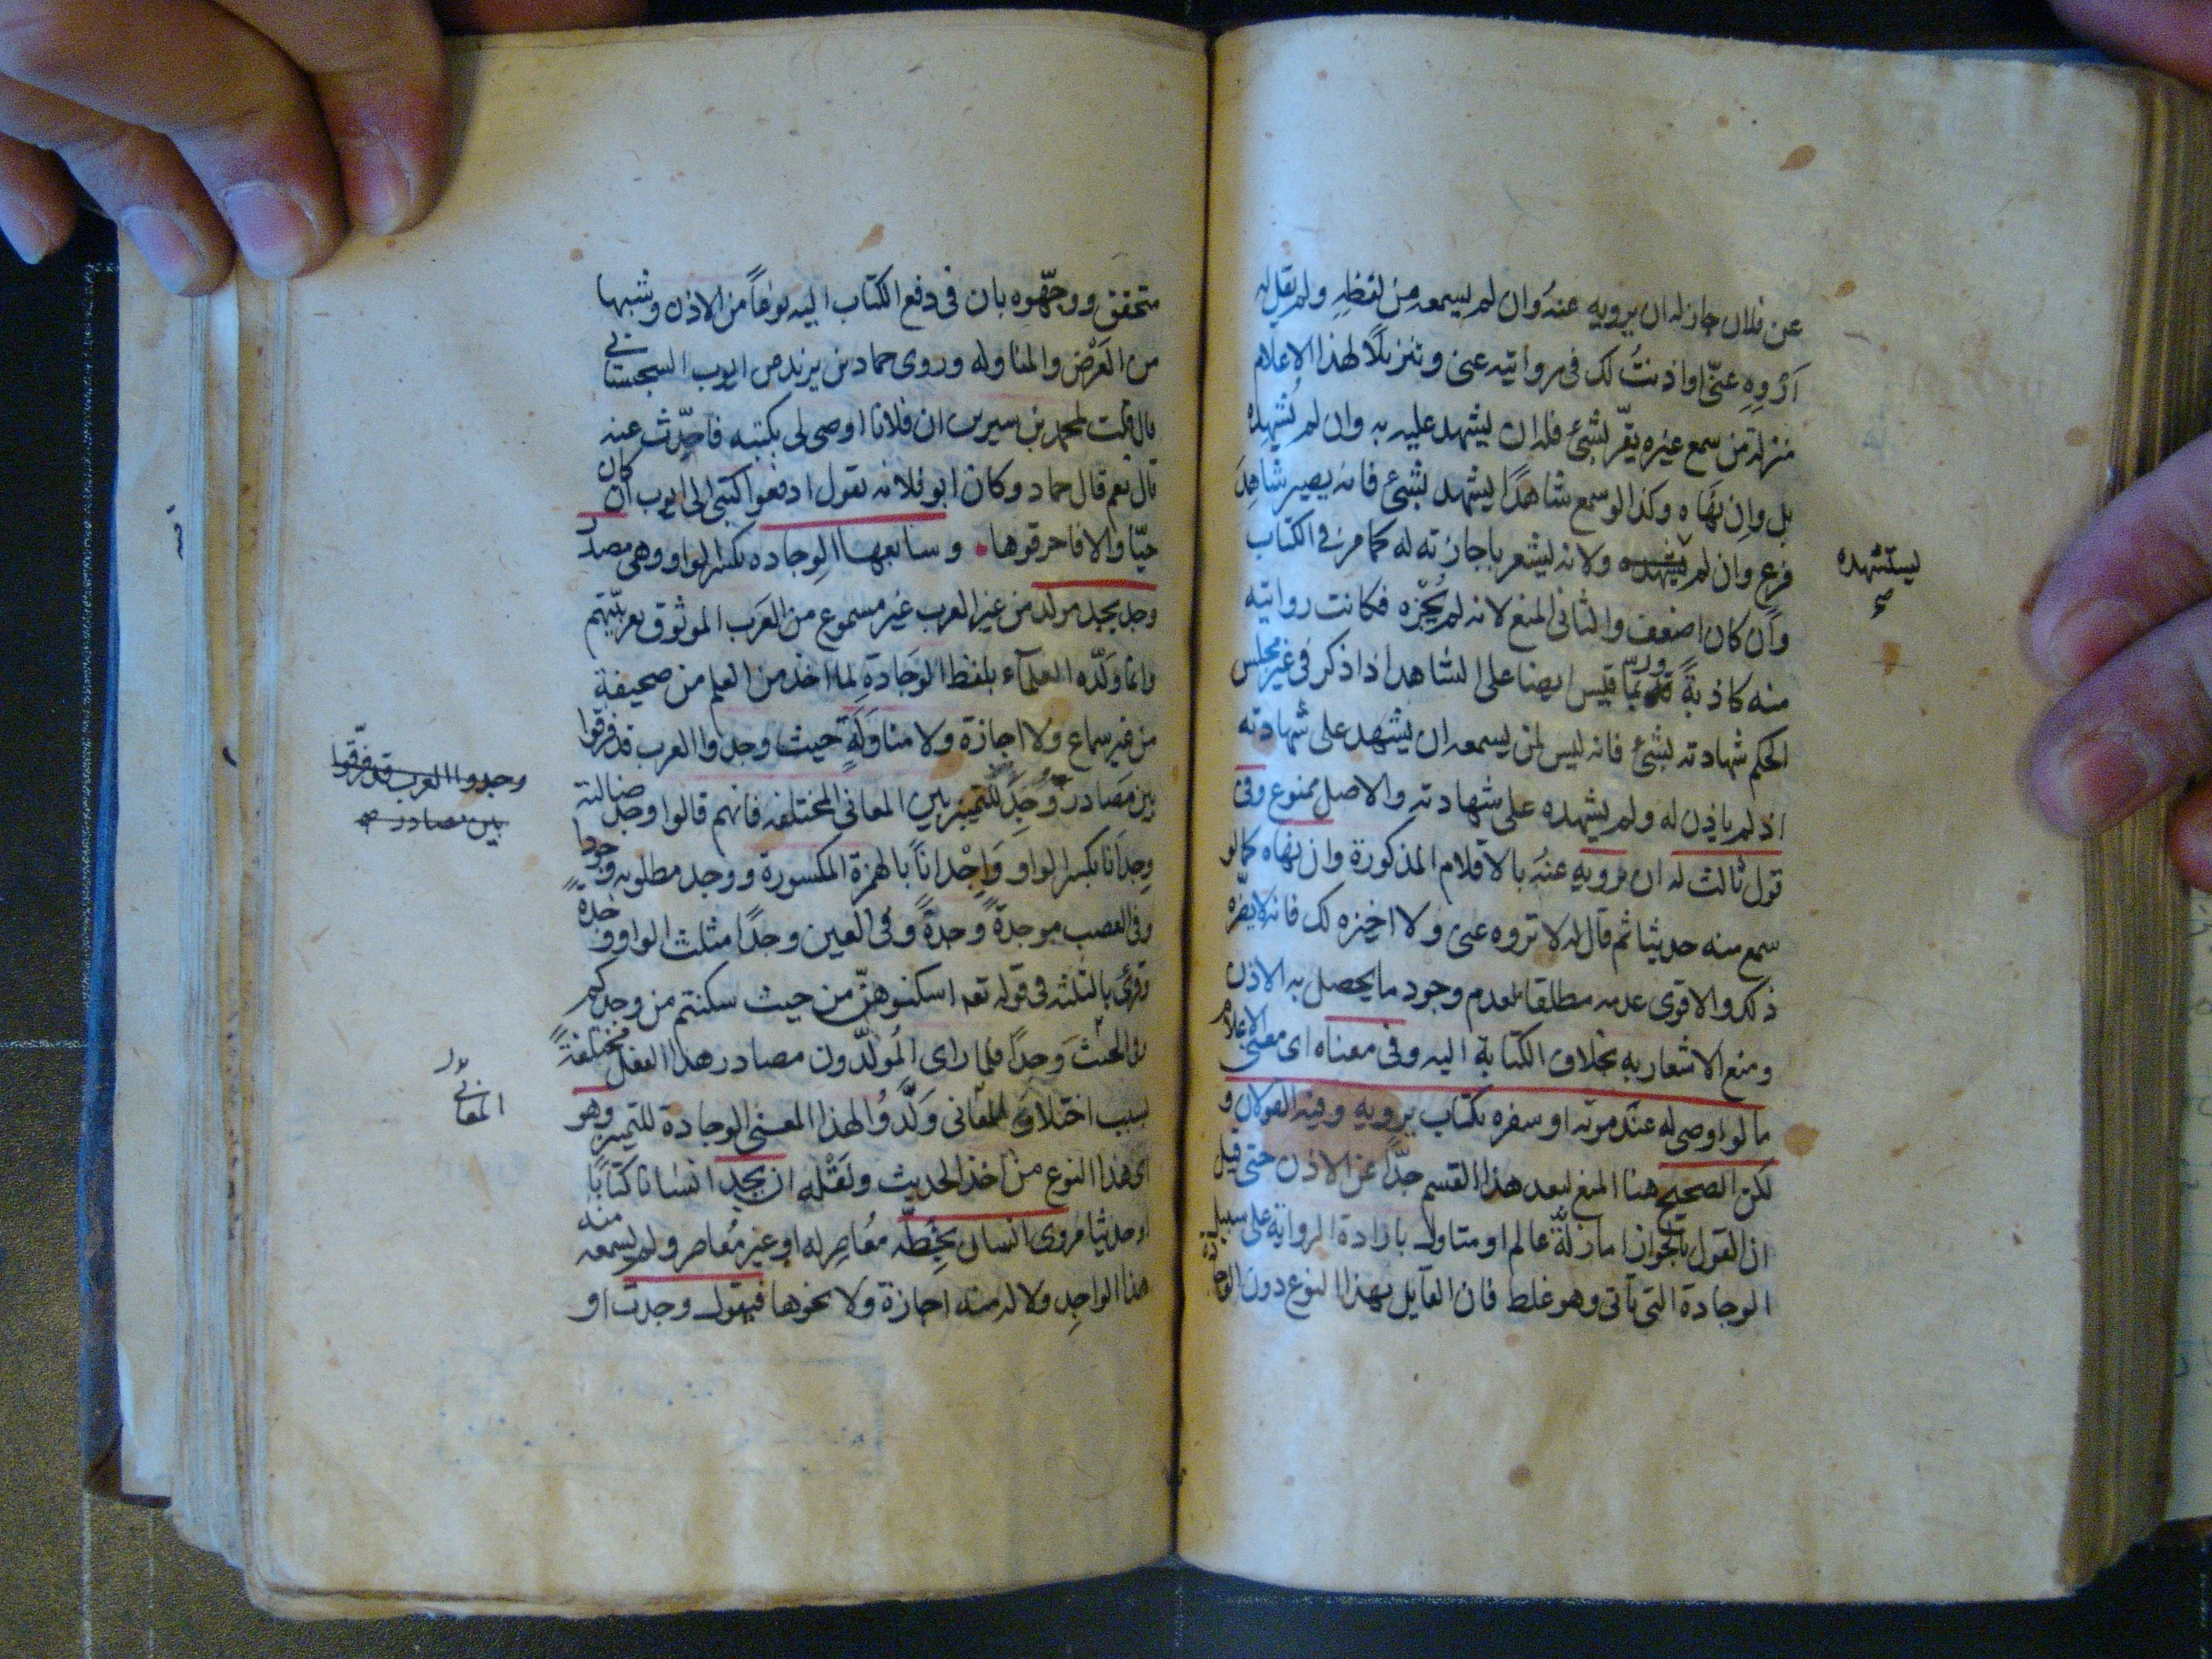 عن فلان جاز له ان يرويه عنه وان لم يسمعه من لفظه ولم يقل له
اَرْوِهِ عنّي او اذنتُ لك في روايته عني وتنزيلًا لهذا الاعلام
منزلة من سمع غيره يقرّ بشئ فله ان يشهد عليه به وان لم يُشهده
بل وان نهاه وكذا لو سمع شاهدًا يشهد بشئ فانه يصير شاهد
فرع وان لم يستشهده ولانه يشعر باجازته له كما مر في الكتاب
يستشهده صح
وان كان اضعف والثاني المنع لانه لم يُجِزه فكانت روايته
منه كاذبةً وربما قيس ايضا على الشاهد اذا ذكر في غير مجلس
الحكم شهادته بشئ فانه ليس لمن يسمعه ان يشهد على شهادته
اذ لم ياذن له ولم يشهده على شهادته والاصل ممنوع وفى
قول ثالث له ان يرويه عنه بالاقلام المذكورة وان نهاه كما لو
سمع منه حديثا ثم قال له لا تروه عني ولا اجيزه لك فانه لا يضره
ذلك والاقوى عدمه مطلقا لعدم وجود ما يحصل به الاذن
ومنع الاشعار به بخلاف الكتابة اليه وفى معناه اى معنى الاعلام
ما لو اوصى له عند موته او سفره بكتاب يرويه وفيه القولان و
لكن الصحيح هنا المنع لبعد هذا القسم جدًا عن الاذن حتى قيل
ان القول بالجواز اما زلّة عالم او متاول بارادة الرواية على سبيل
الوجادة التي تآتى وهو غلط فان القآيل بهذا النوع دون الوجادة
متحقق ووجّهوه بان في دفع الكتاب اليه نوعاً من الاذن وشبها
من العَرْض والمناوله وروى حماد بن يزيد عن ايوب السجستاني
قال قلت لمحمد بن سيرين ان فلانا اوصى لى بكتبه فاحدّث عنه
قال نعم قال حماد وكان ابو قلابه يقول ادفعوا كتبى الى ايوب ان كان
حيّا والا فاحرقوها وسابعها الوِجاده بكسر الواو وهى مصدر
وجد يجد مولد من غير العرب غير مسموع من العَرَب الموثوق بعربيّتهم
وانما وَلّده العلمآء بلفظ الوِجَادَةِ لما اخذ من العلم من صحيفة
من غير سماع ولا اجازة ولا مناوَلَةٍ حيث وجدوا العرب قد فرقوا
وجدوا العرب قد فرّقوا
بين مصادر صح
بين مَصَادر وَجَدَ للتمييز بين المعانى المختلفه فانهم قالوا وجد ضالته
وِجدَانا بكسر الواو وَاِجْداناً بالهمزة المكسورة ووجد مطلوبه وجودا
وفى الغضب موجدةً وجِدةً وفى الغنى وجدًا مثلث الواو وجدةً
وقرئ بالثلثه في قوله تعه اسكنوهنّ من حيث سكنتم من وجدكم
وفي الحب وَجدًا فلما راى المُولّدون مصادر هذا الفعل مختلفةً
بسبب اختلاف المعانى وَلّدُوا لهذا المعنى الوِجادة للتمييز وهو
المعاني
اى هذا النوع من اخذ الحديث ونَقْلِهِ ان يجد انسانا كتابًا
او حديثا مروى انسان بخِطّه مُعَاصِرٍ له او غير مُعَاصر ولم يسمعه منه
هذا الواجِد ولا له منه اجازة ولا نحوها فيقول وجدت او